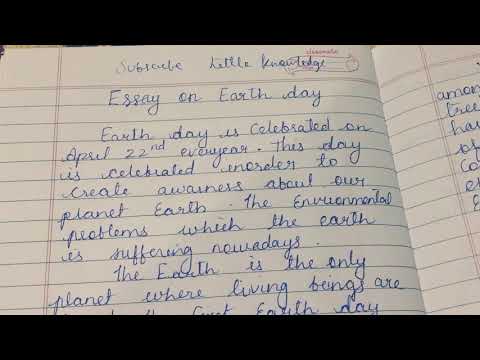 classmate
Subscribe Little Knowledge
Essay on Earth day
Earth day is Celebrated on
April 22nd everyear. This day
is celebrated inorder to
create awarness about our
planet Earth. The Environmental
problems which the earth
is suffering nowadays.
The Earth is the only
planet where living beings are
the first Earth day
among
tree